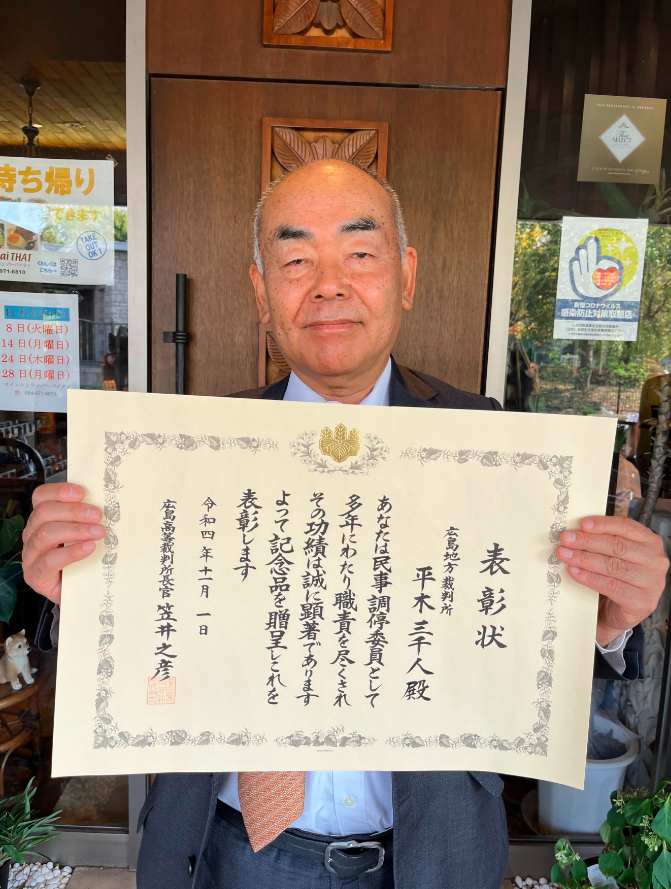 表彰状
広島地方裁判所
平木三千人殿
あなたは民事調停委員として
多年にわたり職責を尽くされ
その功績は誠に顕著であります
よって記念品を贈呈しこれを
表彰します
令和四年十一月一日
広島高等裁判所長官 笠井之彦
持ち帰り
できます
TAKE OUT OK!
くわしくは
こちら→
ai THAI
971-6810
8日(火曜日)
14日(月曜日)
24日(木曜日)
28日(月曜日)
新型コロナウイルス
感染防止対策取組店